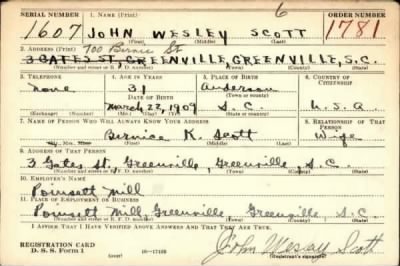 SERIAL NUMBER 1. NAME (Print) 6 ORDER NUMBER
1607 JOHN WESLEY SCOTT 1781
(First) (Middle) (Last)
2. ADDRESS (Print) 700 Bernie St
3 GATES ST, GREENVILLE, GREENVILLE, S.C.
(Number and street or R. F. D. number) (Town) (County) (State)
3. TELEPHONE 4. AGE IN YEARS 5. PLACE OF BIRTH 6. COUNTRY OF CITIZENSHIP
none 31 Anderson
DATE OF BIRTH (Town or county)
March 22, 1909 S.C. U.S.A
(Exchange) (Number) (Mo.) (Day) (Yr.) (State or country)
7. NAME OF PERSON WHO WILL ALWAYS KNOW YOUR ADDRESS 8. RELATIONSHIP OF THAT PERSON
Bernice K. Scott Wife
(Mr., Mrs., Miss) (First) (Middle) (Last)
9. ADDRESS OF THAT PERSON
3 Gates St. Greenville, Greenville, S.C.
(Number and street or R. F. D. number) (Town) (County) (State)
10. EMPLOYER'S NAME
Poinsett Mill
11. PLACE OF EMPLOYMENT OR BUSINESS
Poinsett Mill Greenville, Greenville, S.C.
(Number and street or R. F. D. number) (Town) (County) (State)
I AFFIRM THAT I HAVE VERIFIED ABOVE ANSWERS AND THAT THEY ARE TRUE.
REGISTRATION CARD
D. S. S. Form 1 (over) John Wesley Scott
(Registrant's signature)